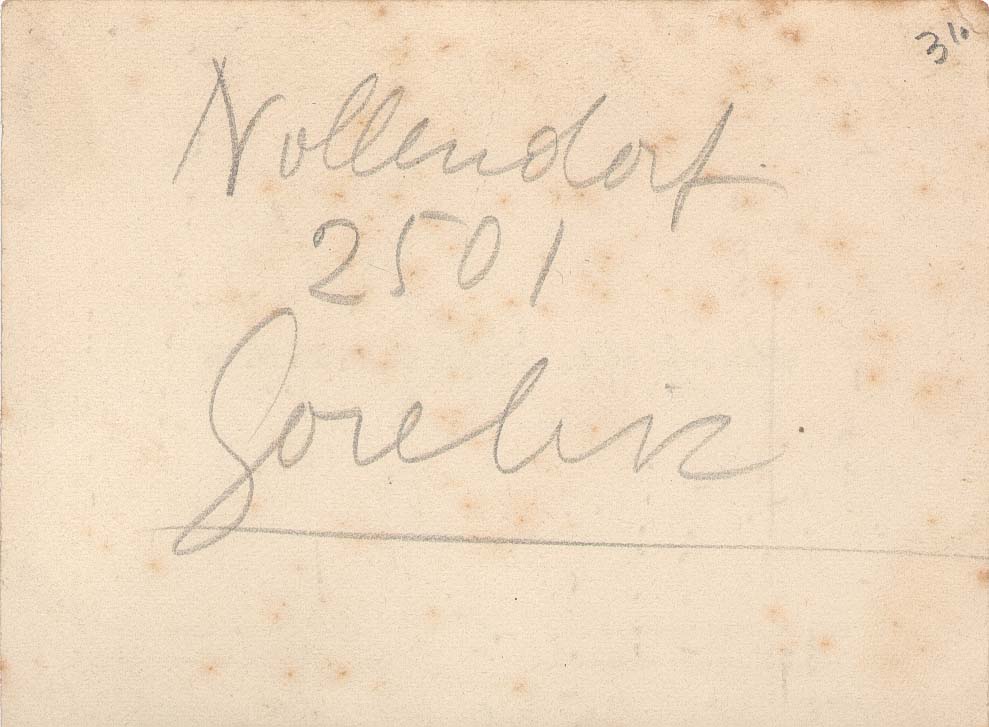 Nollendorf
2501
Gorelik